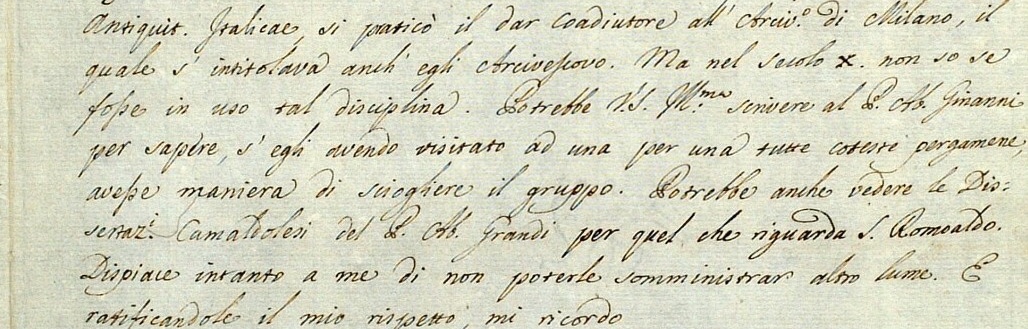 Antiquit. Italicae, si praticò il dar Coadiutore all' Arciv.º di Milano, il
quale s' intitolava anch' egli Arcivescovo. Ma nel secolo X. non so se
fosse in uso tal disciplina. Potrebbe V.S. Ill.ma scrivere al P. Ab. Ginanni
per sapere, s' egli avendo visitato ad una per una tutte coteste pergamene,
avesse maniera di sciogliere il gruppo. Potrebbe anche vedere le Dis=
sertaz.i Camaldolesi del P. Ab. Grandi per quel che riguarda S. Romoaldo.
Dispiace intanto a me di non poterle somministrar altro lume. E
ratificandole il mio rispetto, mi ricordo